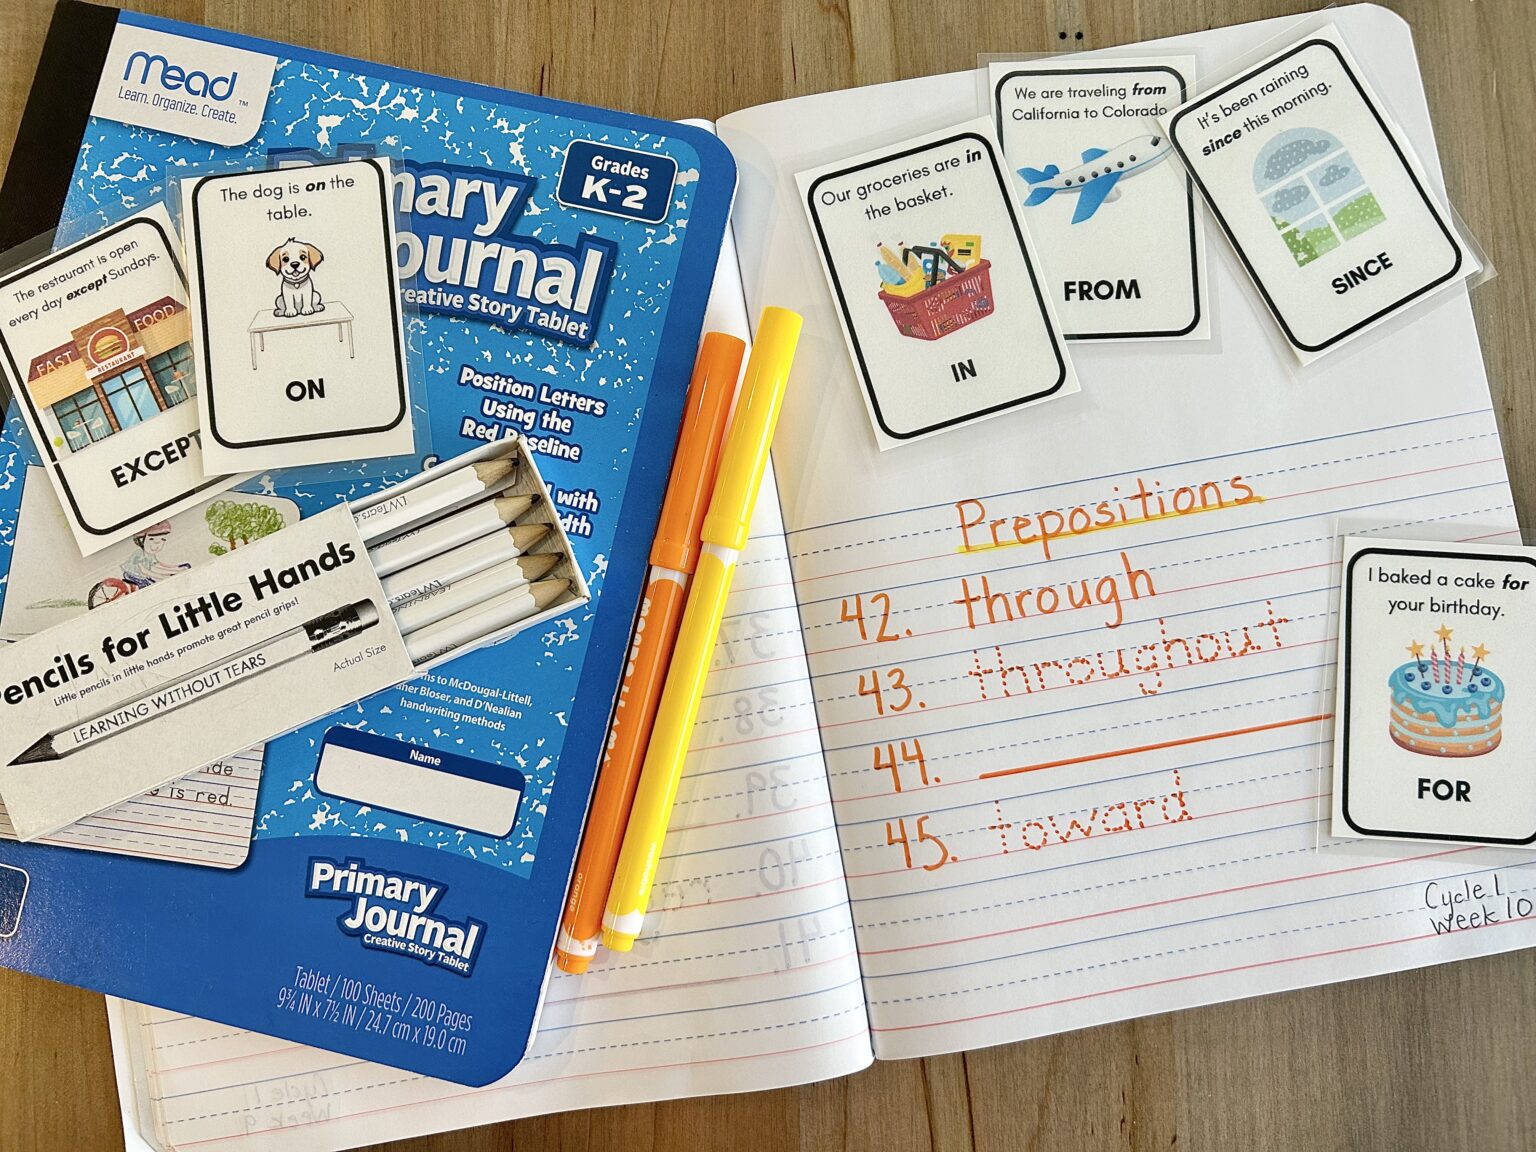 Mead
Learn. Organize. Create.
Grades
K-2
Journal
Creative Story Tablet
Position Letters
Using the
Red Baseline
with
Name
Primary
Journal
Creative Story Tablet
Tablet / 100 Sheets / 200 Pages
9¾ IN x 7½ IN / 24.7 cm x 19.0 cm
to McDougal-Littell,
Bloser, and D'Nealian
handwriting methods
is red.
The restaurant is open
every day except Sundays.
FAST FOOD
RESTAURANT
EXCEPT
The dog is on the
table.
ON
Pencils for Little Hands
Little pencils in little hands promote great pencil grips!
LEARNING WITHOUT TEARS
Actual Size
LWTears
LWTears
orange
washable
Our groceries are in
the basket.
IN
We are traveling from
California to Colorado
FROM
It's been raining
since this morning.
SINCE
Prepositions
42. through
43. throughout
44.
45. toward
I baked a cake for
your birthday.
FOR
Cycle 1
Week 10
37.
38.
39.
40.
41.
Cycle 1
Week 9